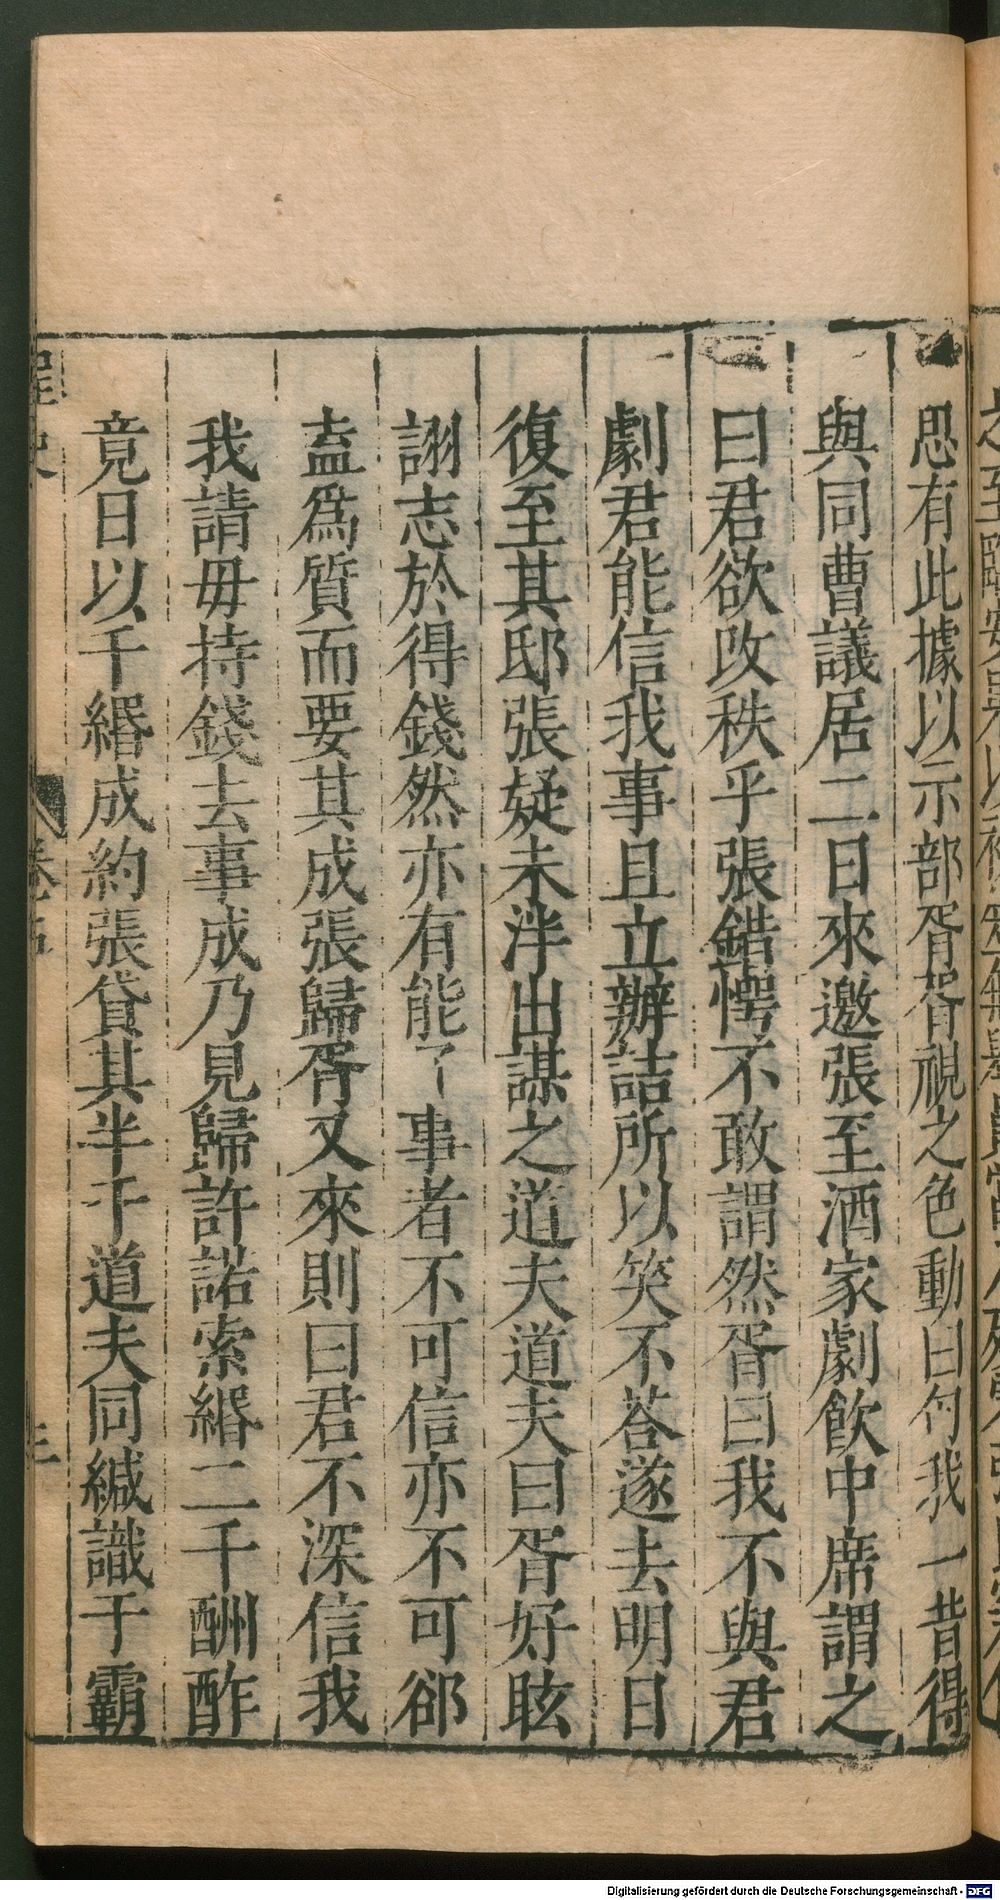 思有此據以示部胥胥視之色動曰匄我一昔得
與同曹議居二日來邀張至酒家劇飲中席謂之
曰君欲改秩乎張錯愕不敢謂然胥曰我不與君
劇君能信我事且立辦詰所以笑不荅遂去明日
復至其邸張疑未泮出謀之道夫道夫曰胥好眩
詡志於得錢然亦有能了事者不可信亦不可郤
盍爲質而要其成張歸胥又來則曰君不深信我
我請毋持錢去事成乃見歸許諾索緡二千酬酢
竟日以千緡成約張貸其半于道夫同緘識于霸
桯史
卷三
三
Digitalisierung gefördert durch die Deutsche Forschungsgemeinschaft - DFG